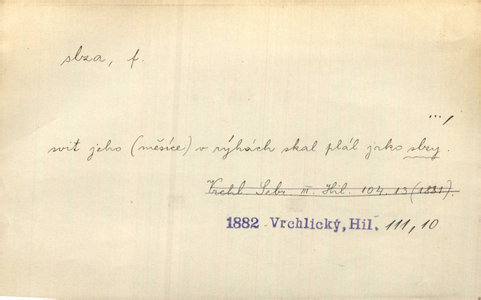 slza, f.
...,
svit jeho (měsíce) v rýhách skal plál jako slzy.
Vrchl. Sebr. III. Hil. 104. 13 (1881).
1882 Vrchlický, Hil. 111, 10